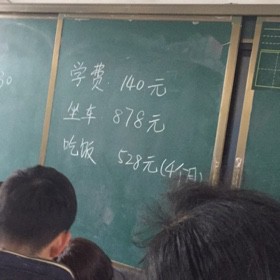 学费 140元
坐车 878元
吃饭 528元(4个月)